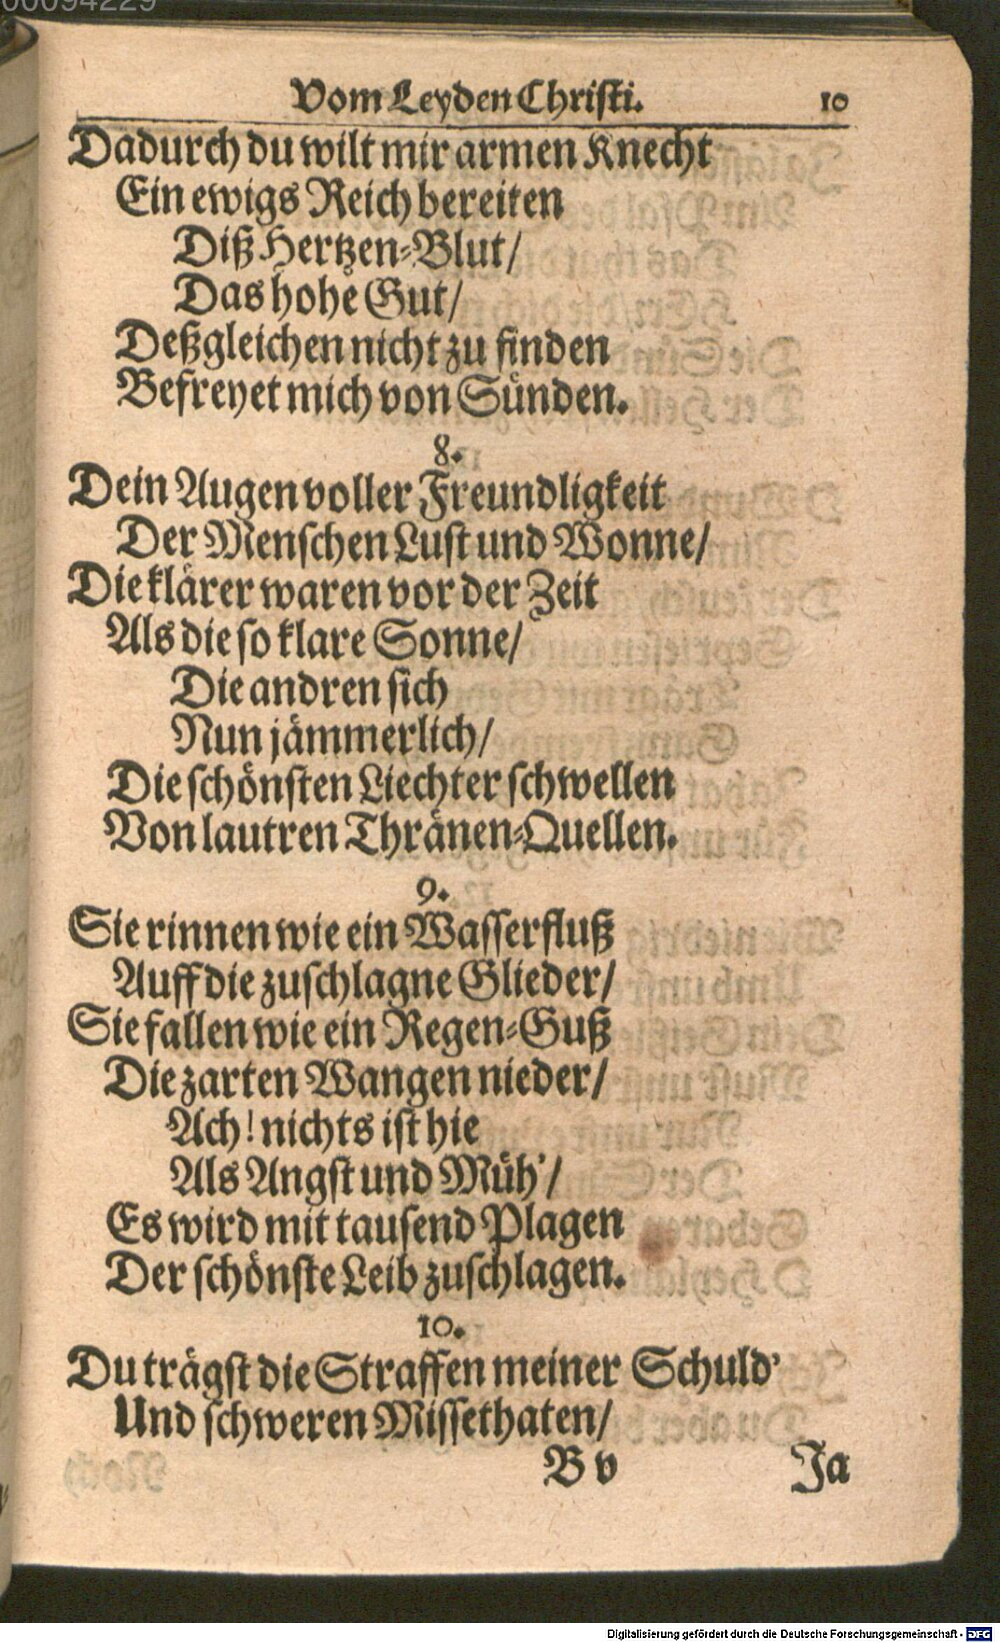 00094229
Vom Leyden Christi. 10
Dadurch du wilt mir armen Knecht
Ein ewigs Reich bereiten
Diß Hertzen-Blut/
Das hohe Gut/
Deßgleichen nicht zu finden
Befreyet mich von Sünden.
8.
Dein Augen voller Freundligkeit
Der Menschen Lust und Wonne/
Die klärer waren vor der Zeit
Als die so klare Sonne/
Die andren sich
Nun jämmerlich/
Die schönsten Liechter schwellen
Von lautren Thränen-Quellen.
9.
Sie rinnen wie ein Wasserfluß
Auff die zuschlagne Glieder/
Sie fallen wie ein Regen-Guß
Die zarten Wangen nieder/
Ach! nichts ist hie
Als Angst und Müh'/
Es wird mit tausend Plagen
Der schönste Leib zuschlagen.
10.
Du trägst die Straffen meiner Schuld'
Und schweren Missethaten/
B v Ja
Digitalisierung gefördert durch die Deutsche Forschungsgemeinschaft - DFG